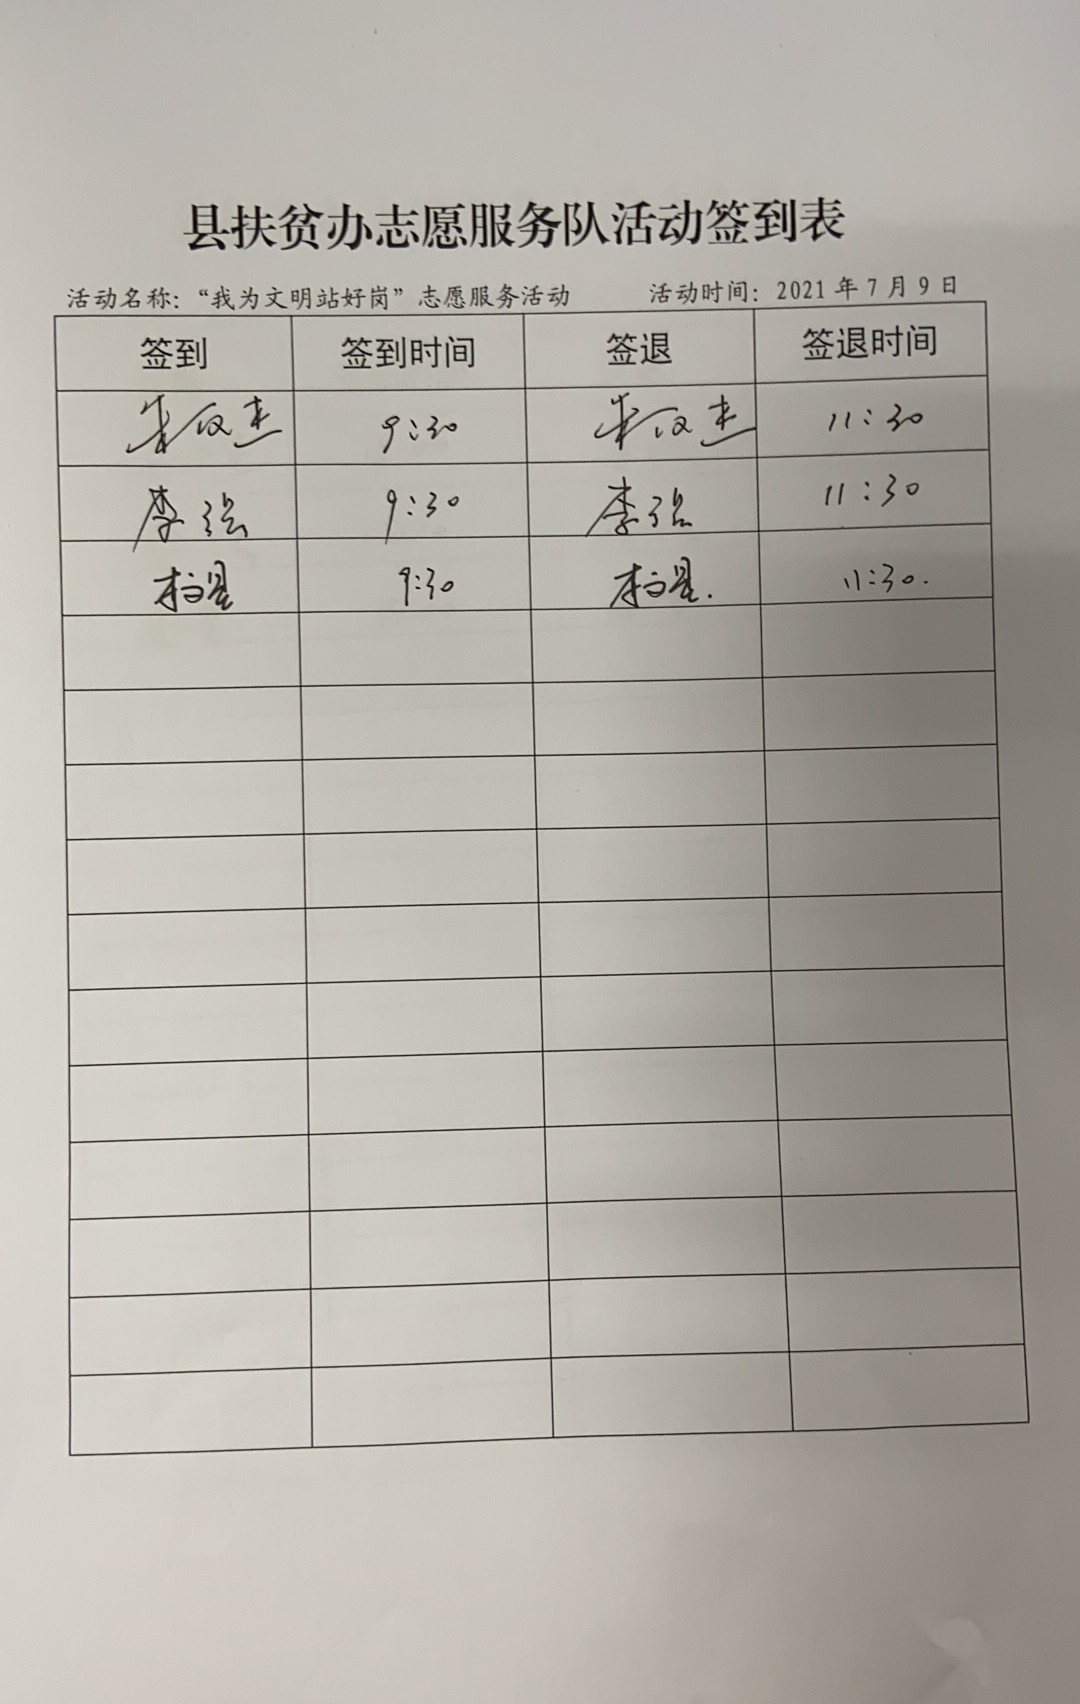 县扶贫办志愿服务队活动签到表
活动名称：“我为文明站好岗”志愿服务活动 活动时间：2021年7月9日
签到 签到时间 签退 签退时间
9:30 11:30
李强 9:30 李强 11:30
9:30 11:30.